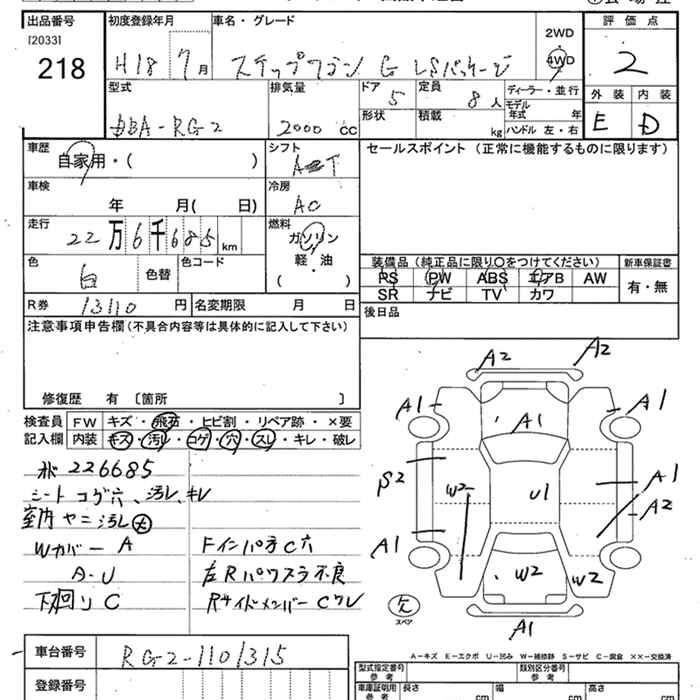 出品番号
[2033]
218
初度登録年月
H18 7月
車名・グレード
ステップワゴン G LSパッケージ
2WD
4WD
評価点
2
外装 内装
E D
型式
DBA-RG2
排気量
2000 CC
ドア
5
定員
8人
形状
積載
kg
ディーラー・並行
モデル年式 年
ハンドル 左・右
車歴
自家用・( )
シフト
AT
セールスポイント (正常に機能するものに限ります)
車検
年 月( 日)
冷房
AC
走行
22万6千685km
燃料
ガソリン
軽・油
( )
色
白
色替
色コード
装備品 (純正品に限り○をつけてください)
新車保証書
PS PW ABS エアB AW
SR ナビ TV カワ
有・無
R券
13110円
名変期限 月 日
後日品
注意事項申告欄 (不具合内容等は具体的に記入して下さい)
修復歴 有 〔箇所 〕
検査員記入欄
FW キズ・飛石・ヒビ割・リペア跡・×要
内装 キズ・汚レ・コゲ・穴・スレ・キレ・破レ
226685
シート コゲ穴、汚レ、キレ
室内 ヤニ汚レ大
Wカバー A
A-U
下回リ C
ドインパネ C穴
左Rパワスラ不良
Rサイドメンバー Cワレ
A2
A2
A1
A1
A1
S2
W2
U1
A1
A2
A1
W2
W2
A1
欠
スペア
A-キズ E-エクボ U-凹み W-補修跡 S-サビ C-腐食 XX-交換済
車台番号
RG2-1101315
登録番号
型式指定番号
参考
類別区分番号
参考
車庫証明用
参考
長さ cm
幅 cm
高さ cm